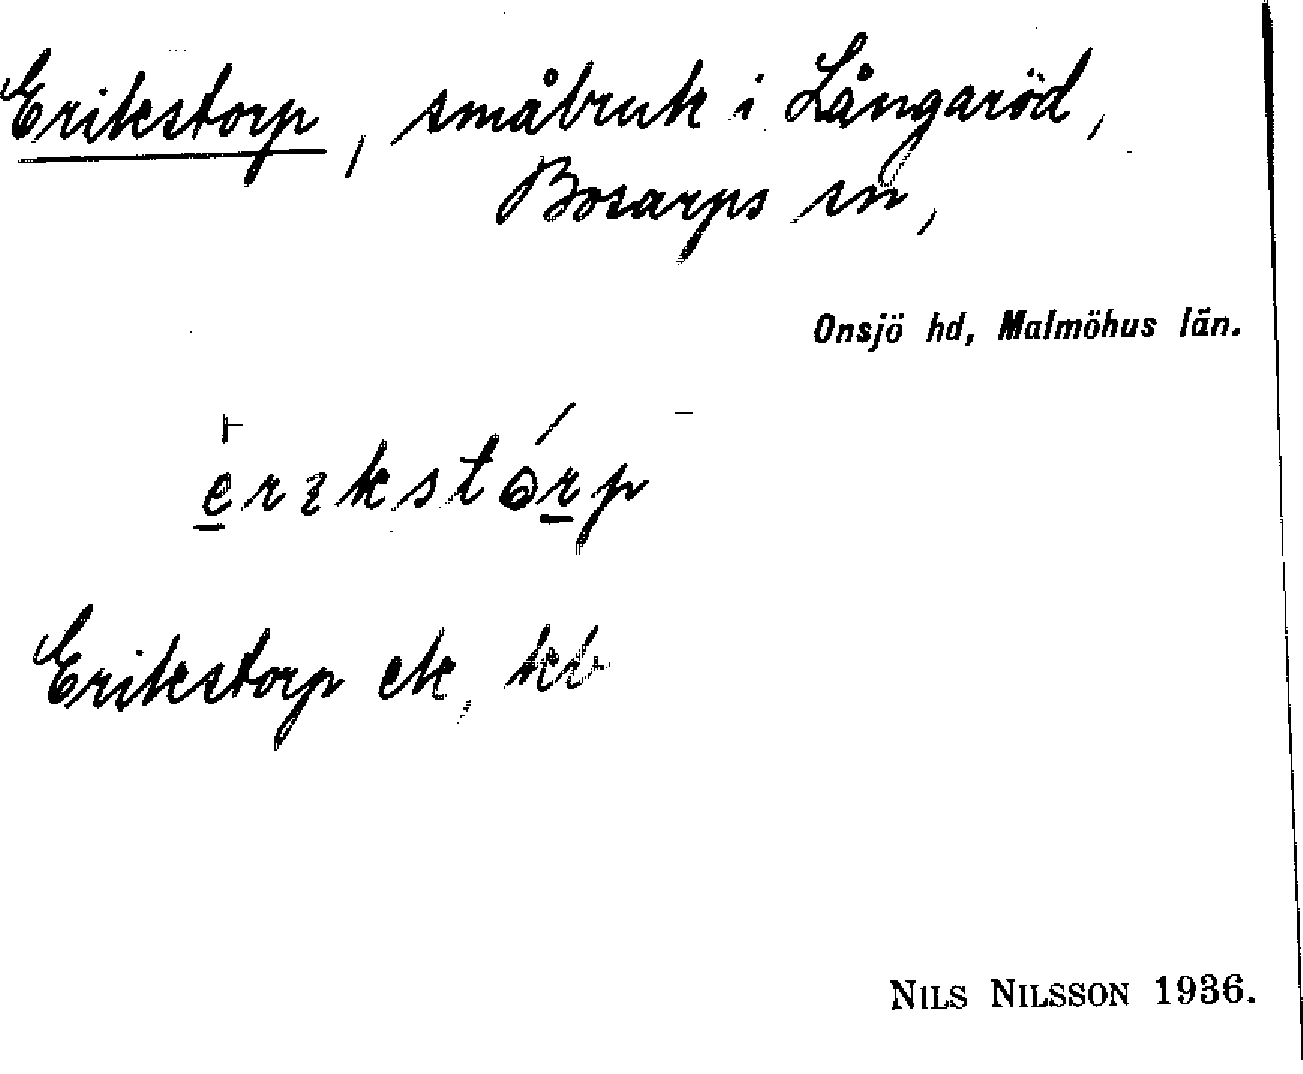 Erikstorp, småbruk i Långaröd,
Bosarps sn,
Onsjö hd, Malmöhus län.
erıkstórp
Erikstorp ek,
NILS NILSSON 1936.